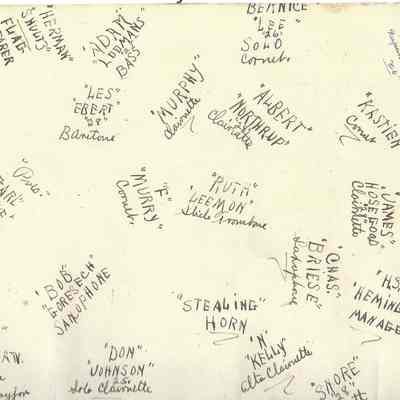 "HERMAN"
SHULTS"
FLAG
BEARER
"ADAM"
LODMANS"
BASS"
BERNICE"
"LEE"
"26"
SOLO
Cornet.
"LES"
EBERT"
"28"
Baritone
"MURPHY"
Clarionette
"ALBERT"
"NORTHRUP"
Clarionette
"KASTIEN
Cornet
"Pvo."
"F"
"MURRY"
Cornet.
"RUTH"
"LEEMON"
Slide Trombone
"JAMES"
HOSEGOOD
Clarionette
"CHAS.
BRIESE"
Saxaphone
"BOB"
"GORESECH"
SAXOPHONE
"STEALING"
HORN
"H.S.
"HEMING
MANAGE
"DON"
JOHNSON"
"25"
Solo Clarionette
"N"
"KELLY"
alto Clarionette
"SNORE"
"28"